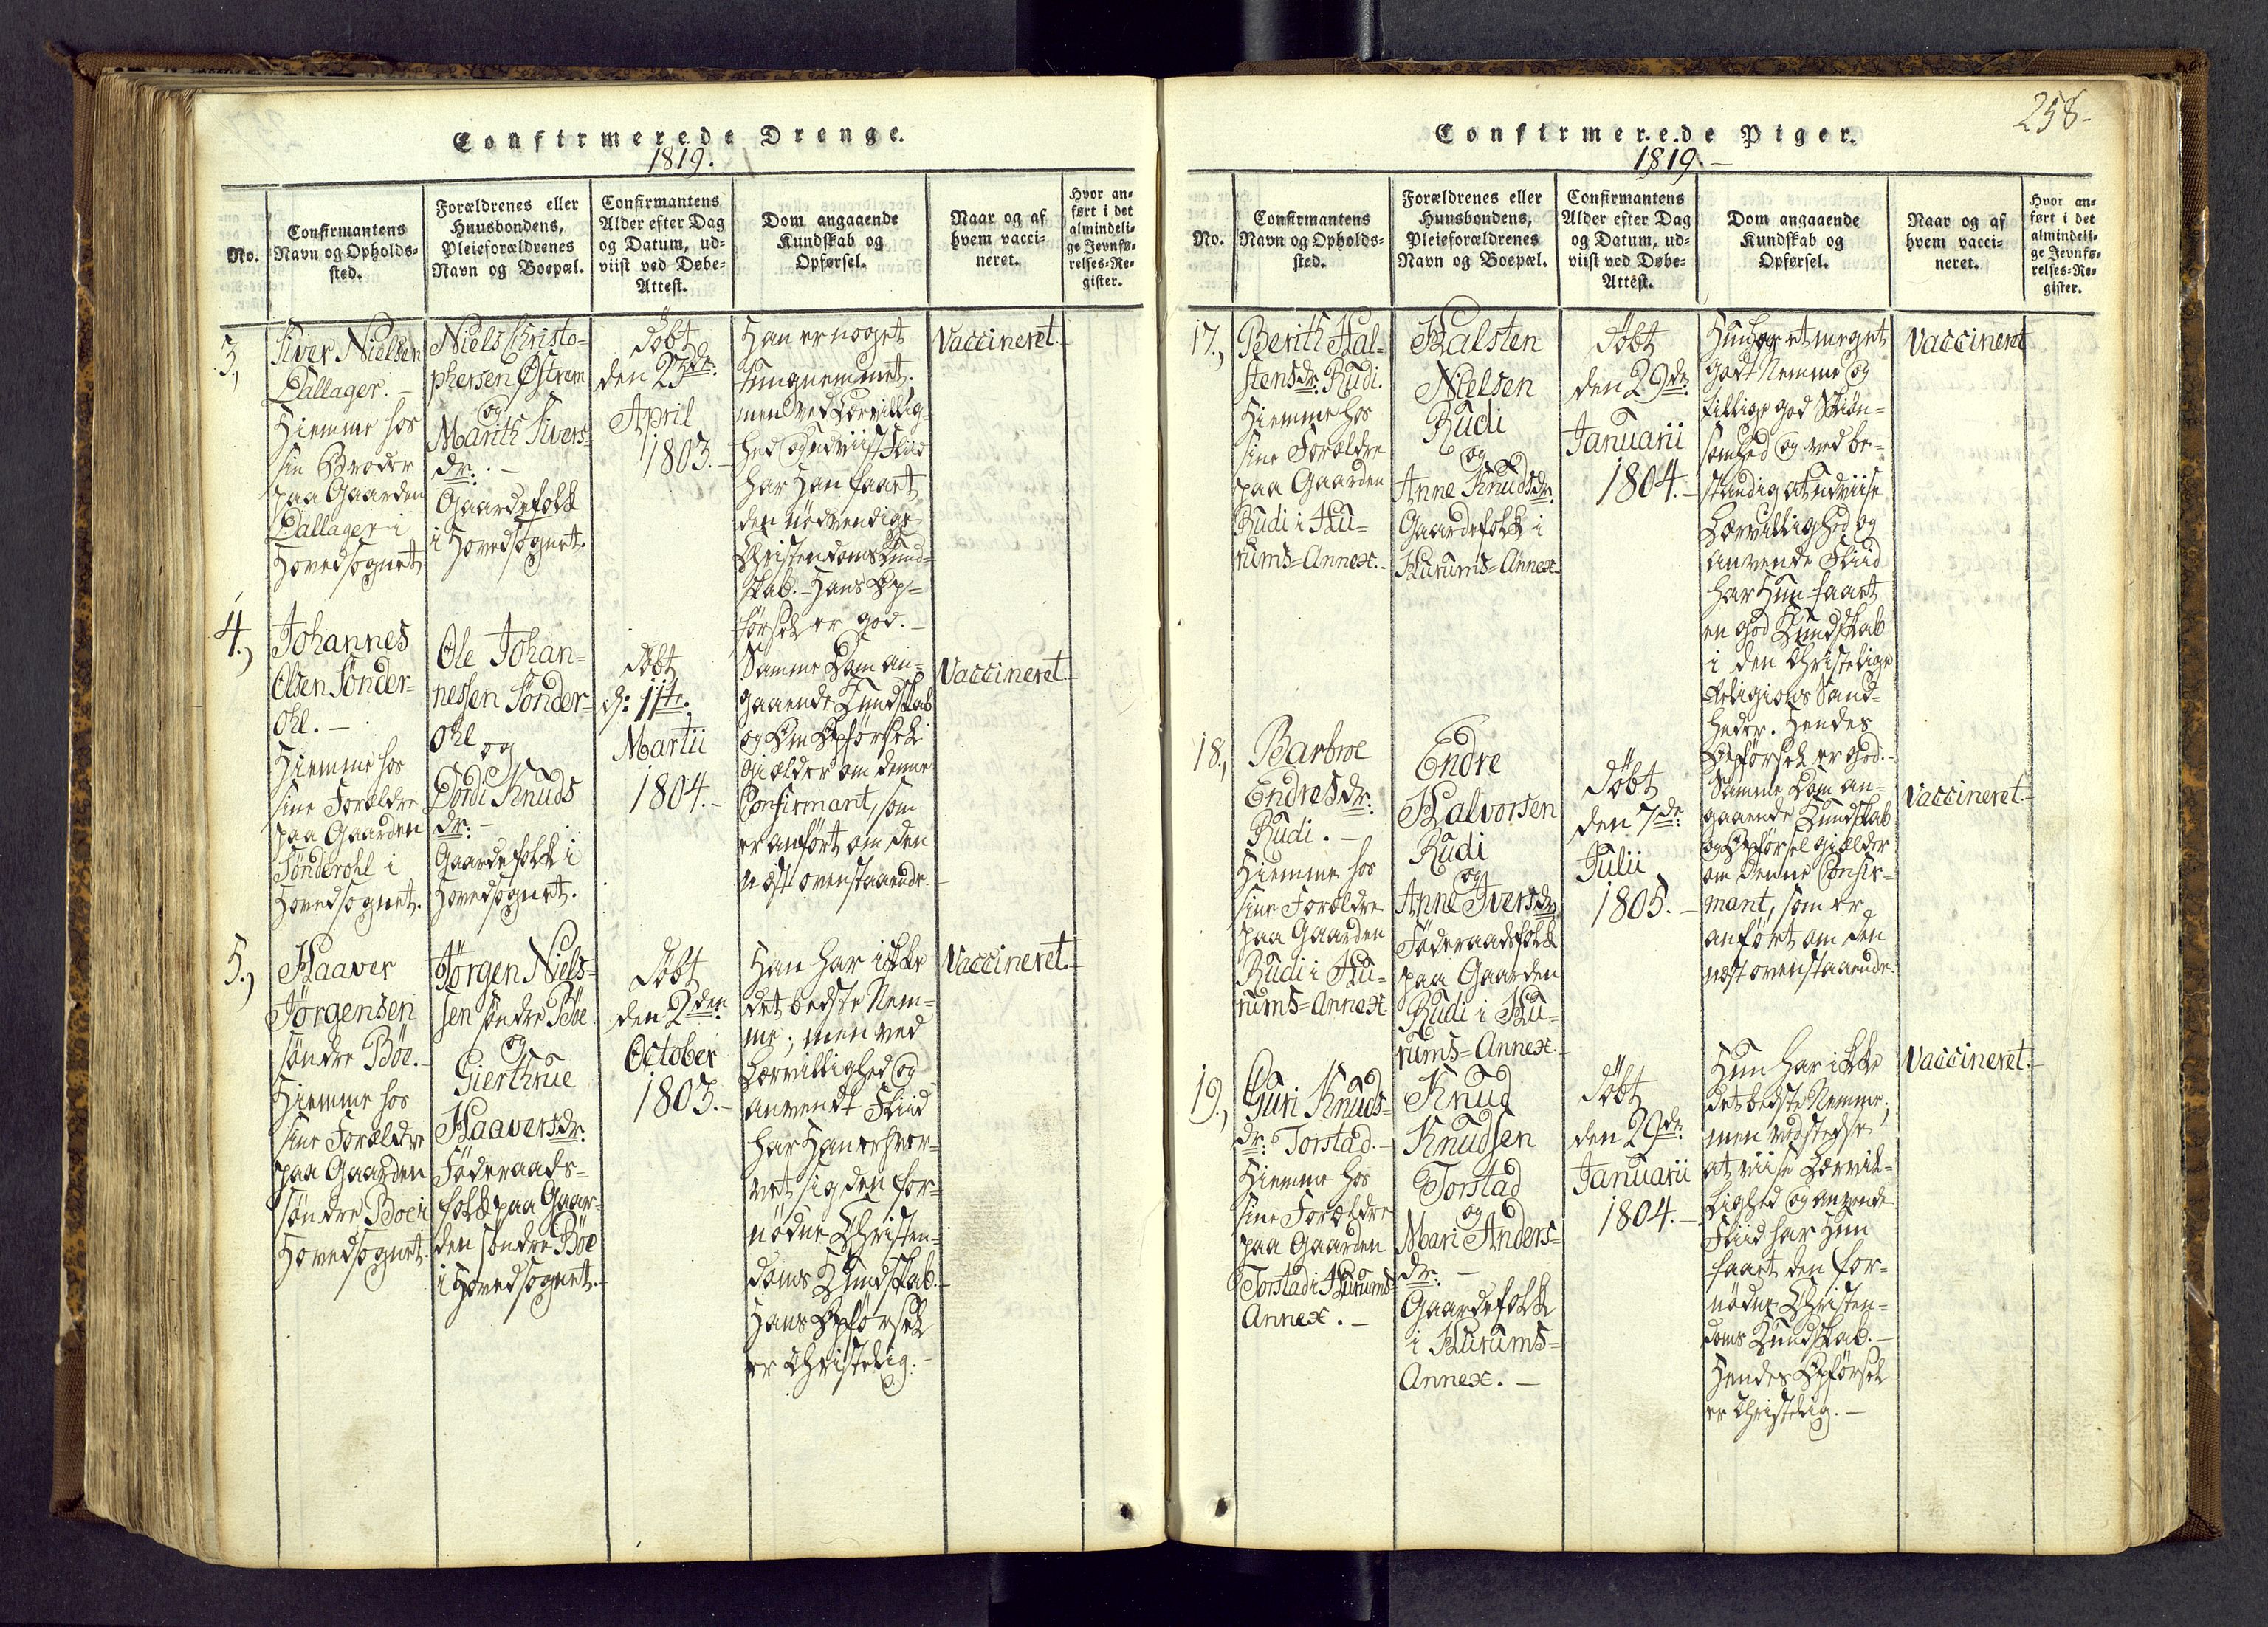 Confirmerede Drenge.
1819.
No.
Confirmantens
Navn og Opholds-
sted.
Forældrenes eller
Huusbondens,
Pleieforældrenes
Navn og Boepæl.
Confirmantens
Alder efter Dag
og Datum, ud-
viist ved Døbe-
Attest.
Dom angaaende
Kundskab og
Opførsel.
Naar og af
hvem vacci-
neret.
Hvor an-
ført i det
almindeli-
ge Jevnfø-
relses-Re-
gister.
3.,
Siver Nielsen
Dallager. –
Hiemme hos
sin Broder
paa Gaarden
Dallager i
Hovedsognet
Niels Christo-
phersen Østrem
og
Marith Sivers-
dr. –
Gaardefolk
i Hovedsognet.
Döbt
den 23de
April
1803. –
Han er noget
tungnemmet.
men ved Lærvillig-
hed og udviist Fliid
har Han faaet
den nödvendige
Christendoms Kund-
skab. – Hans Op-
førsel er god. –
Vaccineret.
4.,
Johannes
Olsen Sönder-
ohl. –
Hiemme hos
sine Forældre
paa Gaarden
Sönderohl i
Hovedsognet.
Ole Johan-
nessen Sönder-
ohl og
Dordi Knuds
dr. –
Gaardefolk i
Hovedsognet.
Döbt
d: 11te
Martii
1804. –
Samme Dom an-
gaaende Kundskab
og Om Opförsel
gielder om denne
Confirmant, som
er anfört om den
næst ovenstaaende. –
Vaccineret. –
5.,
Haaver
Jörgensen
söndre Böe. –
Hiemme hos
sine Forældre
paa Gaarden
söndre Boe i
Hovedsognet.
Jörgen Niels-
sen söndre Böe
og
Gierthrue
Haaversdr.
Föderaads-
folk paa Gaar-
den söndre Böe
i Hovedsognet. –
Döbt
den 2den
October
1803. –
Han har ikke
det bedste Nem-
me; men ved
Lærvillighed og
anvendt Fliid
har Han erhver-
vet sig den for-
nödne Christen-
doms Kundskab. –
Hans Opförsel
er Christelig. –
Vaccineret. –
258-
Confirmerede Piger.
1819. –
No.
Confirmantens
Navn og Opholds-
sted.
Forældrenes eller
Huusbondens,
Pleieforældrenes
Navn og Boepæl.
Confirmantens
Alder efter Dag
og Datum, ud-
viist ved Døbe-
Attest.
Dom angaaende
Kundskab og
Opførsel.
Naar og af
hvem vacci-
neret.
Hvor an-
ført i det
almindeli-
ge Jevnfø-
relses-Re-
gister.
17.,
Berith Hal-
stensdr. Rudi.
Hiemme hos
sine Forældre
paa Gaarden
Rudi i Hu-
rums-Annex. –
Halsten
Nielsen
Rudi
og
Anne Knudsdr.
Gaardefolk i
Hurums-Annex
Döbt
den 29de
Januarii
1804. –
Hun har et meget
godt Nemme og
tillige god Skiön-
somhed og ved be-
standig at udviise
Lærvillighed og
anvende Fliid
har Hun faaet
en god Kundskab
i den Christelige
Religions Sand-
heder. Hendes
Opförsel er god. –
Vaccineret
18.,
Barbroe
Endresdr.
Rudi. –
Hiemme hos
sine Forældre
paa Gaarden
Rudi i Hu-
rums-Annex
Endre
Halvorsen
Rudi
og
Anne Iversdr.
Föderaadsfolk
paa Gaarden
Rudi i Hu-
rums-Annex. –
Döbt
den 7de
Julii
1805. –
Samme Dom an-
gaaende Kundskab
og Opförsel gielder
om denne Confir-
mant, som er
anfört om den
næst ovenstaaende.
Vaccineret. –
19.,
Guri Knuds-
dr. Torstad. –
Hiemme hos
sine Forældre
paa Gaarden
Torstad i Hurums-
Annex. –
Knud
Knudsen
Torstad
og
Mari Anders-
dr. –
Gaardefolk
i Hurums-
Annex. –
Döbt
den 29de
Januarii
1804. –
Hun har ikke
det bedste Nemme;
men ved stedse
at viise Lærvil-
lighed og anvende
Fliid har Hun
faaet den for-
nödne Christen-
doms Kundskab. –
Hendes Opförsel
er Christelig. –
Vaccineret. –